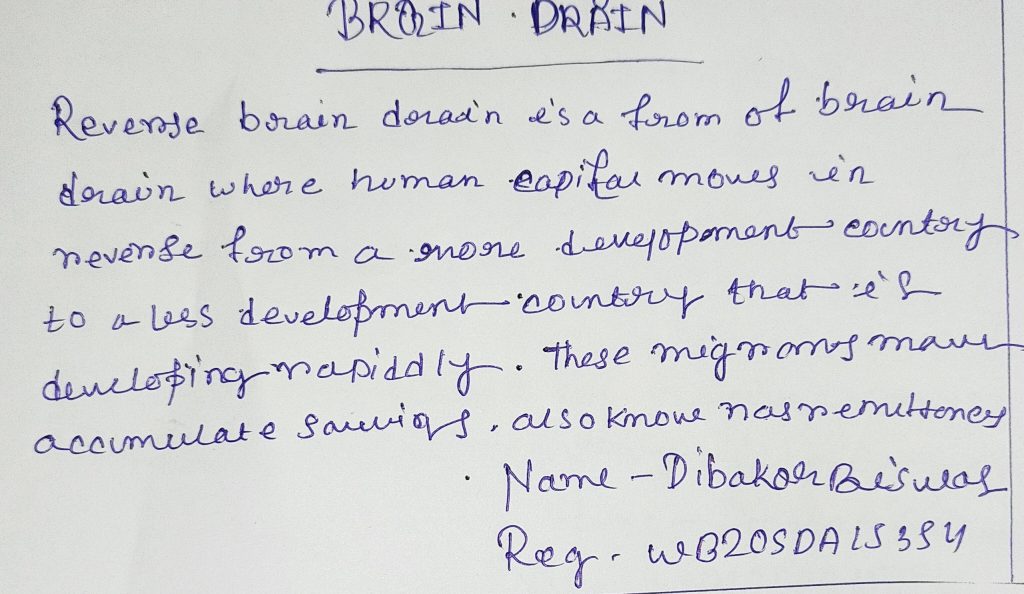 BRAIN . DRAIN
Reverse brain drain is a from of brain
drain where human capital moves in
reverse from a more developement country
to a less development country that is
developing rapiddly. These migrants may
accumulate saviqs, also know nas remittences
Name - Dibakar Biswas
Reg. WB20SDA15354